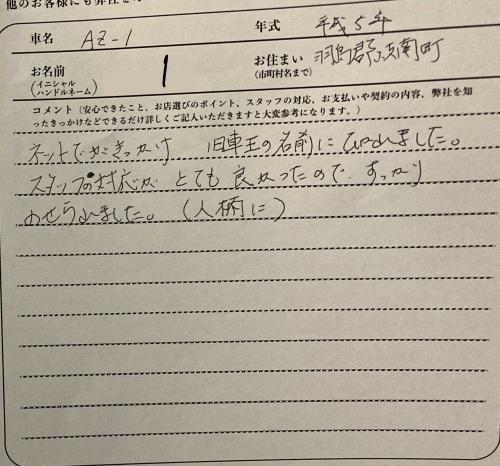 他のお客様にも弊社を
車名 AZ-1 年式 平成5年
お名前 (イニシャル ハンドルネーム) I お住まい (市町村名まで) 羽島郡笠南町
コメント（安心できたこと、お店選びのポイント、スタッフの対応、お支払いや契約の内容、弊社を知
ったきっかけなどできるだけ詳しくご記入いただきますと大変参考になります。）
ネットでがきっかけ 旧車王の名前にひかれました。
スタッフの対応が とても 良かったので、すっかり
のせられました。（人柄に）